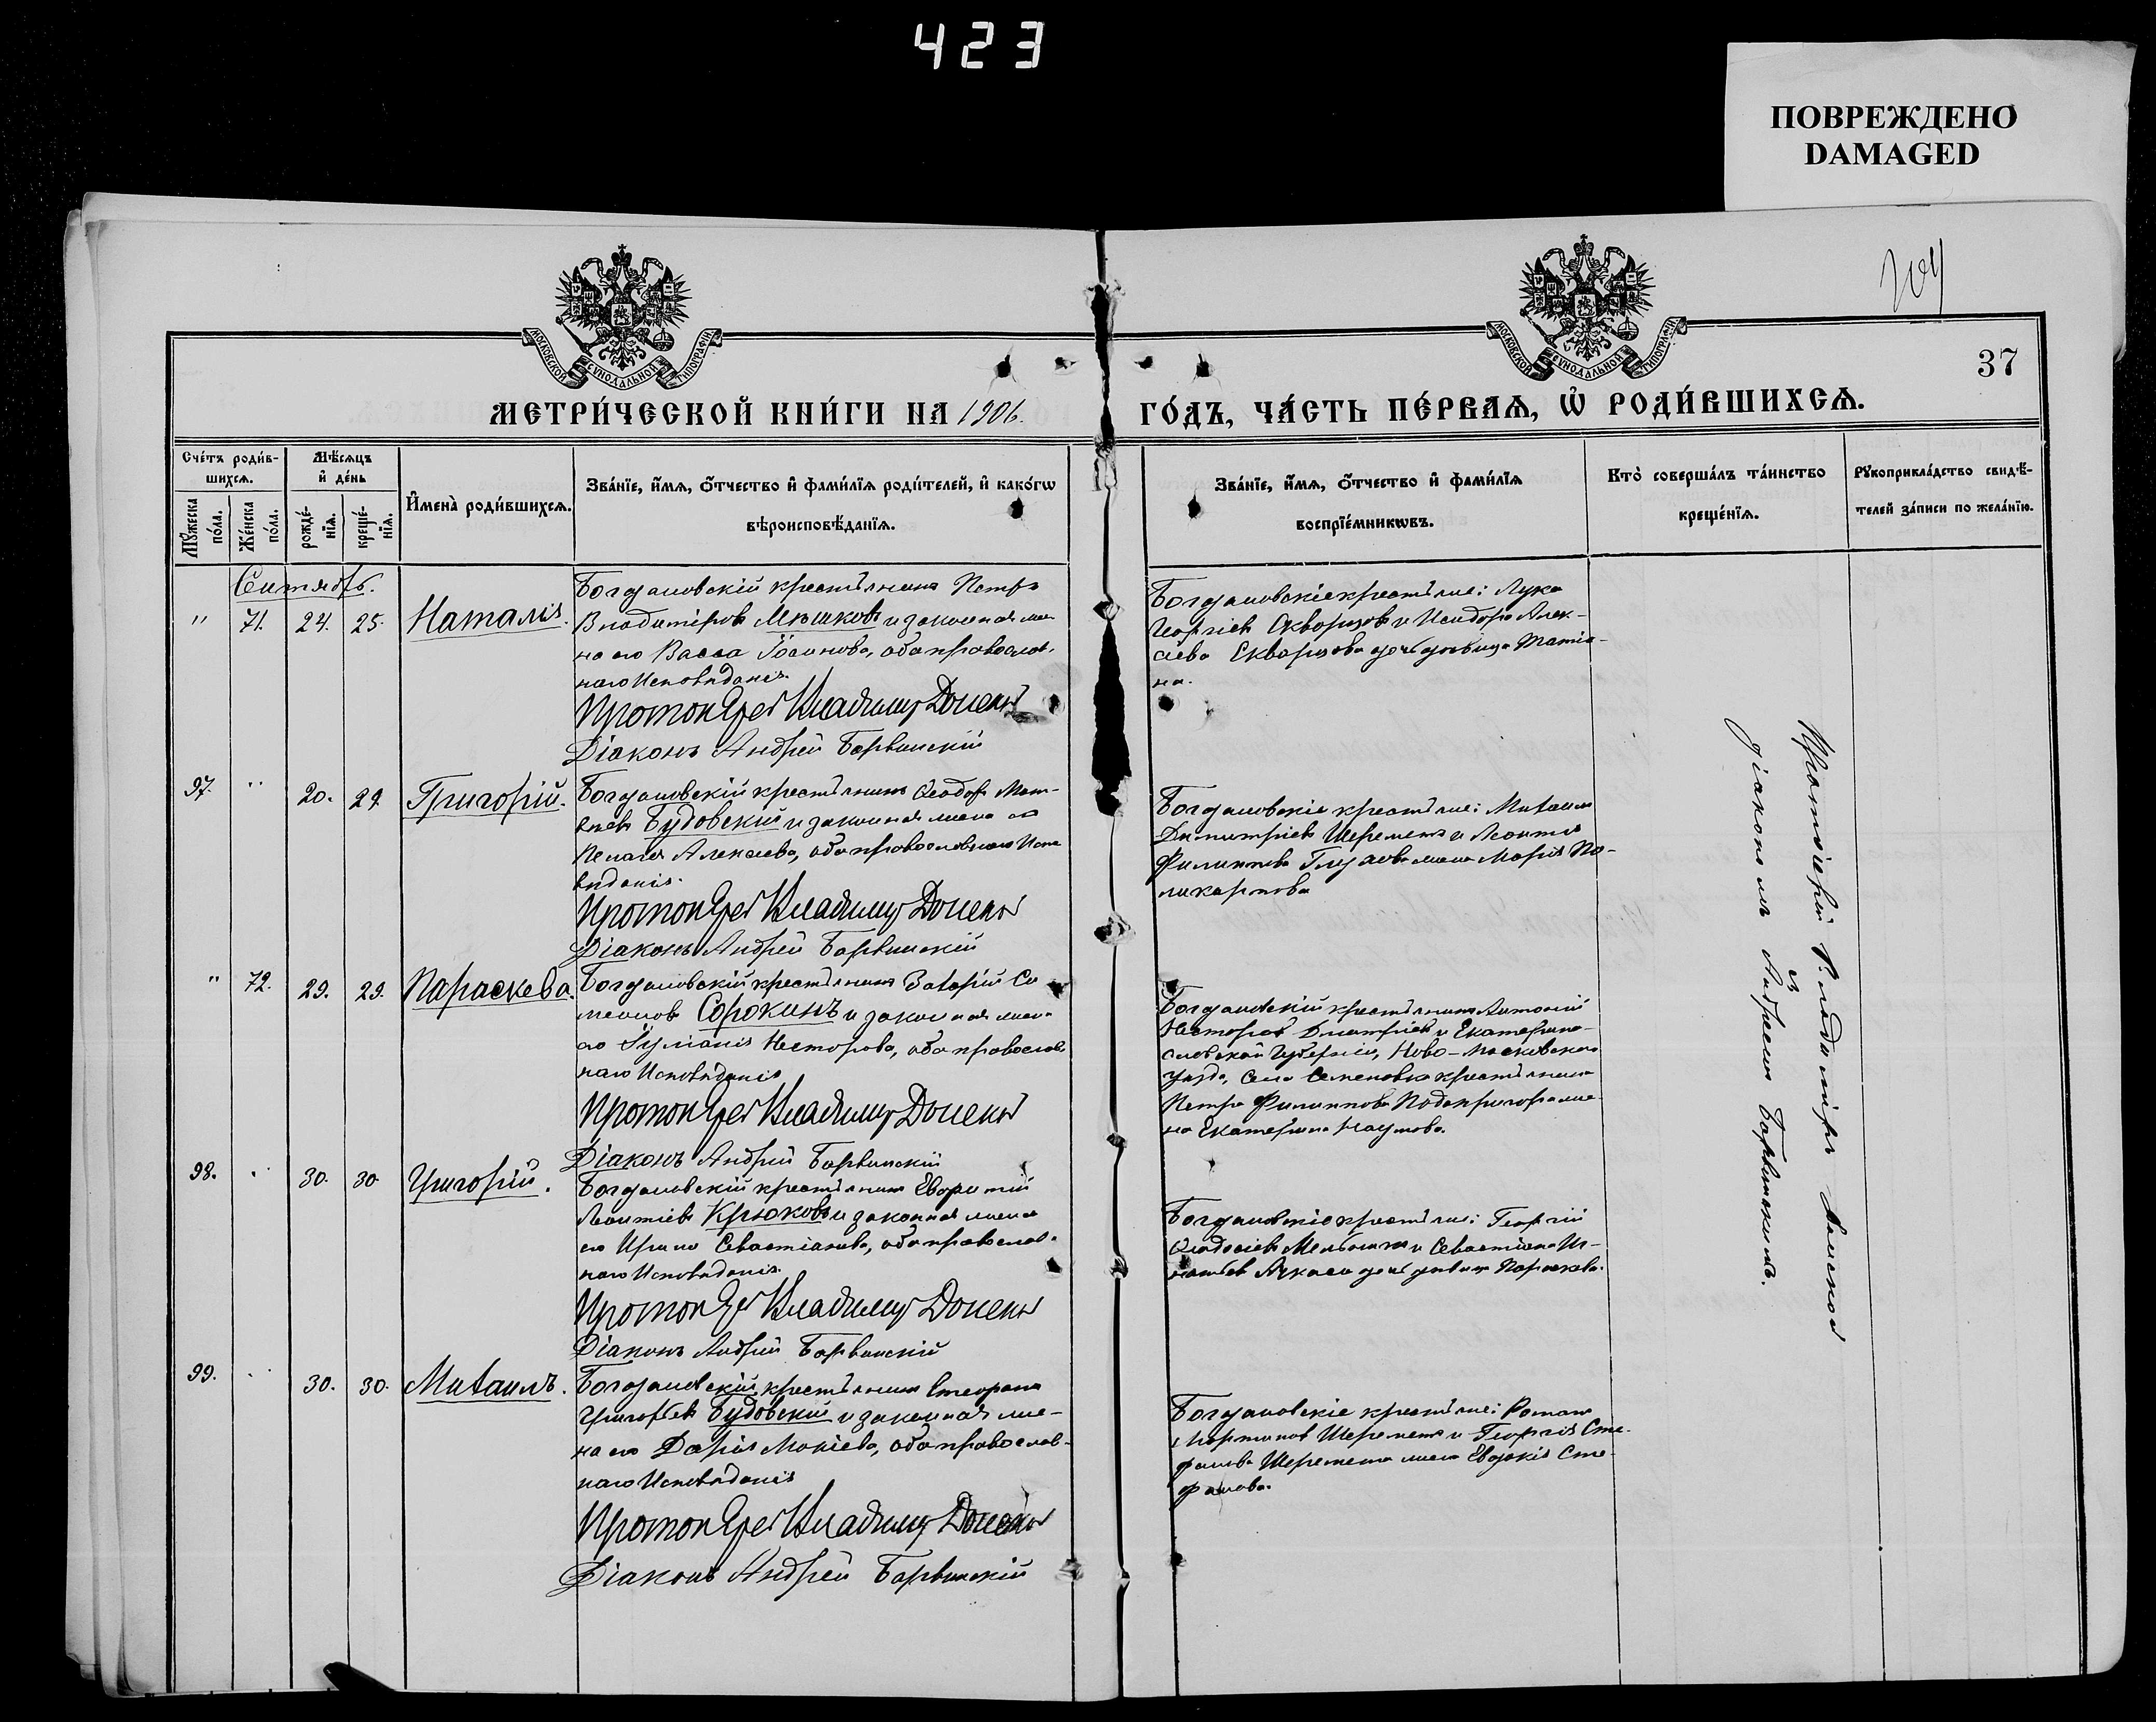 423
ПОВРЕЖДЕНО
DAMAGED
204
37
МОСКОВСКОЙ СѴНОДАЛЬНОЙ ТИПОГРАФІИ
МОСКОВСКОЙ СѴНОДАЛЬНОЙ ТИПОГРАФІИ
МЕТРИ́ЧЕСКОЙ КНИ́ГИ НА 1906. ГО́ДЪ, ЧА́СТЬ ПЕ́РВАѦ, Ѡ РОДИ́ВШИХСѦ.
Сче́тъ роди́в-
шихсѧ.
Мꙋжеска по́ла.
Же́нска по́ла.
Мѣ́сѧцъ
и҆ де́нь
рожде́-
нїѧ.
креще́-
нїѧ.
И҆мена̀ роди́вшихсѧ.
Зва́нїе, и҆́мѧ, ѻ҆́тчество и҆ фами́лїѧ роди́телей, и҆ како́гѡ
вѣроисповѣ́данїѧ.
Зва́нїе, и҆́мѧ, ѻ҆́тчество и҆ фами́лїѧ
воспрїе́мникѡвъ.
Кто̀ соверша́лъ та́инство
креще́нїѧ.
Рꙋкоприкла́дство свидѣ́-
телей за́писи по жела́нїю.
Сентябрь.
" 71. 24. 25. Наталія.
Богдановскій крестьянинъ Петръ
Владиміровъ Мѣшковъ и законная же-
на его Васса Іоаннова, оба православ-
наго Исповѣданія.
Протоіерей Владиміръ Донской
Діаконъ Андрей Барвинскій
Богдановскіе крестьяне: Лука
Георгіевъ Скворцовъ и Исидора Алек-
сіева Скворцова дочь дѣвица Татіа-
на.
97. " 20. 29. Григорій.
Богдановскій крестьянинъ Ѳеодоръ Мат-
вѣевъ Будовскій и законная жена его
Пелагія Алексіева, оба православнаго Испо-
вѣданія.
Протоіерей Владиміръ Донской
Діаконъ Андрей Барвинскій
Богдановскіе крестьяне: Михаилъ
Димитріевъ Шереметъ и Леонтія
Филиппова жена Марія По-
ликарпова
" 72. 29. 29. Параскева.
Богдановскій крестьянинъ Захарій Си-
меоновъ Сорокинъ и законная жена
его Іуліанія Несторова, оба православ-
наго Исповѣданія
Протоіерей Владиміръ Донской
Діаконъ Андрей Барвинскій
Богдановскій крестьянинъ Антоній
Несторовъ Димитріевъ и Екатерино-
славской Губерніи, Ново-Московскаго
уѣзда, села Семеновки крестьянина
Петра Филиппова Подопригора же-
на Екатерина Наумова.
98. " 30. 30. Григорій.
Богдановскій крестьянинъ
Леонтіевъ Крюковъ и законная жена
его Ирина Севастіанова, оба православ-
наго Исповѣданія.
Протоіерей Владиміръ Донской
Діаконъ Андрей Барвинскій
Богдановскіе крестьяне: Георгій
Ѳеодосіевъ Мельникъ и Севастіана Иг-
натьева дочь дѣвица Параскева.
99. " 30. 30. Михаилъ.
Богдановскій крестьянинъ Стефанъ
Григорьевъ Будовскій и законная же-
на его Дарія Мокіева, оба православ-
наго Исповѣданія
Протоіерей Владиміръ Донской
Діаконъ Андрей Барвинскій
Богдановскіе крестьяне: Романъ
Мартиновъ Шереметъ и Георгія Сте-
фанова Шеремета жена Евдокія Сте-
фанова.
Протоіерей Владиміръ Донской
съ
діакономъ Андреемъ Барвинскимъ.